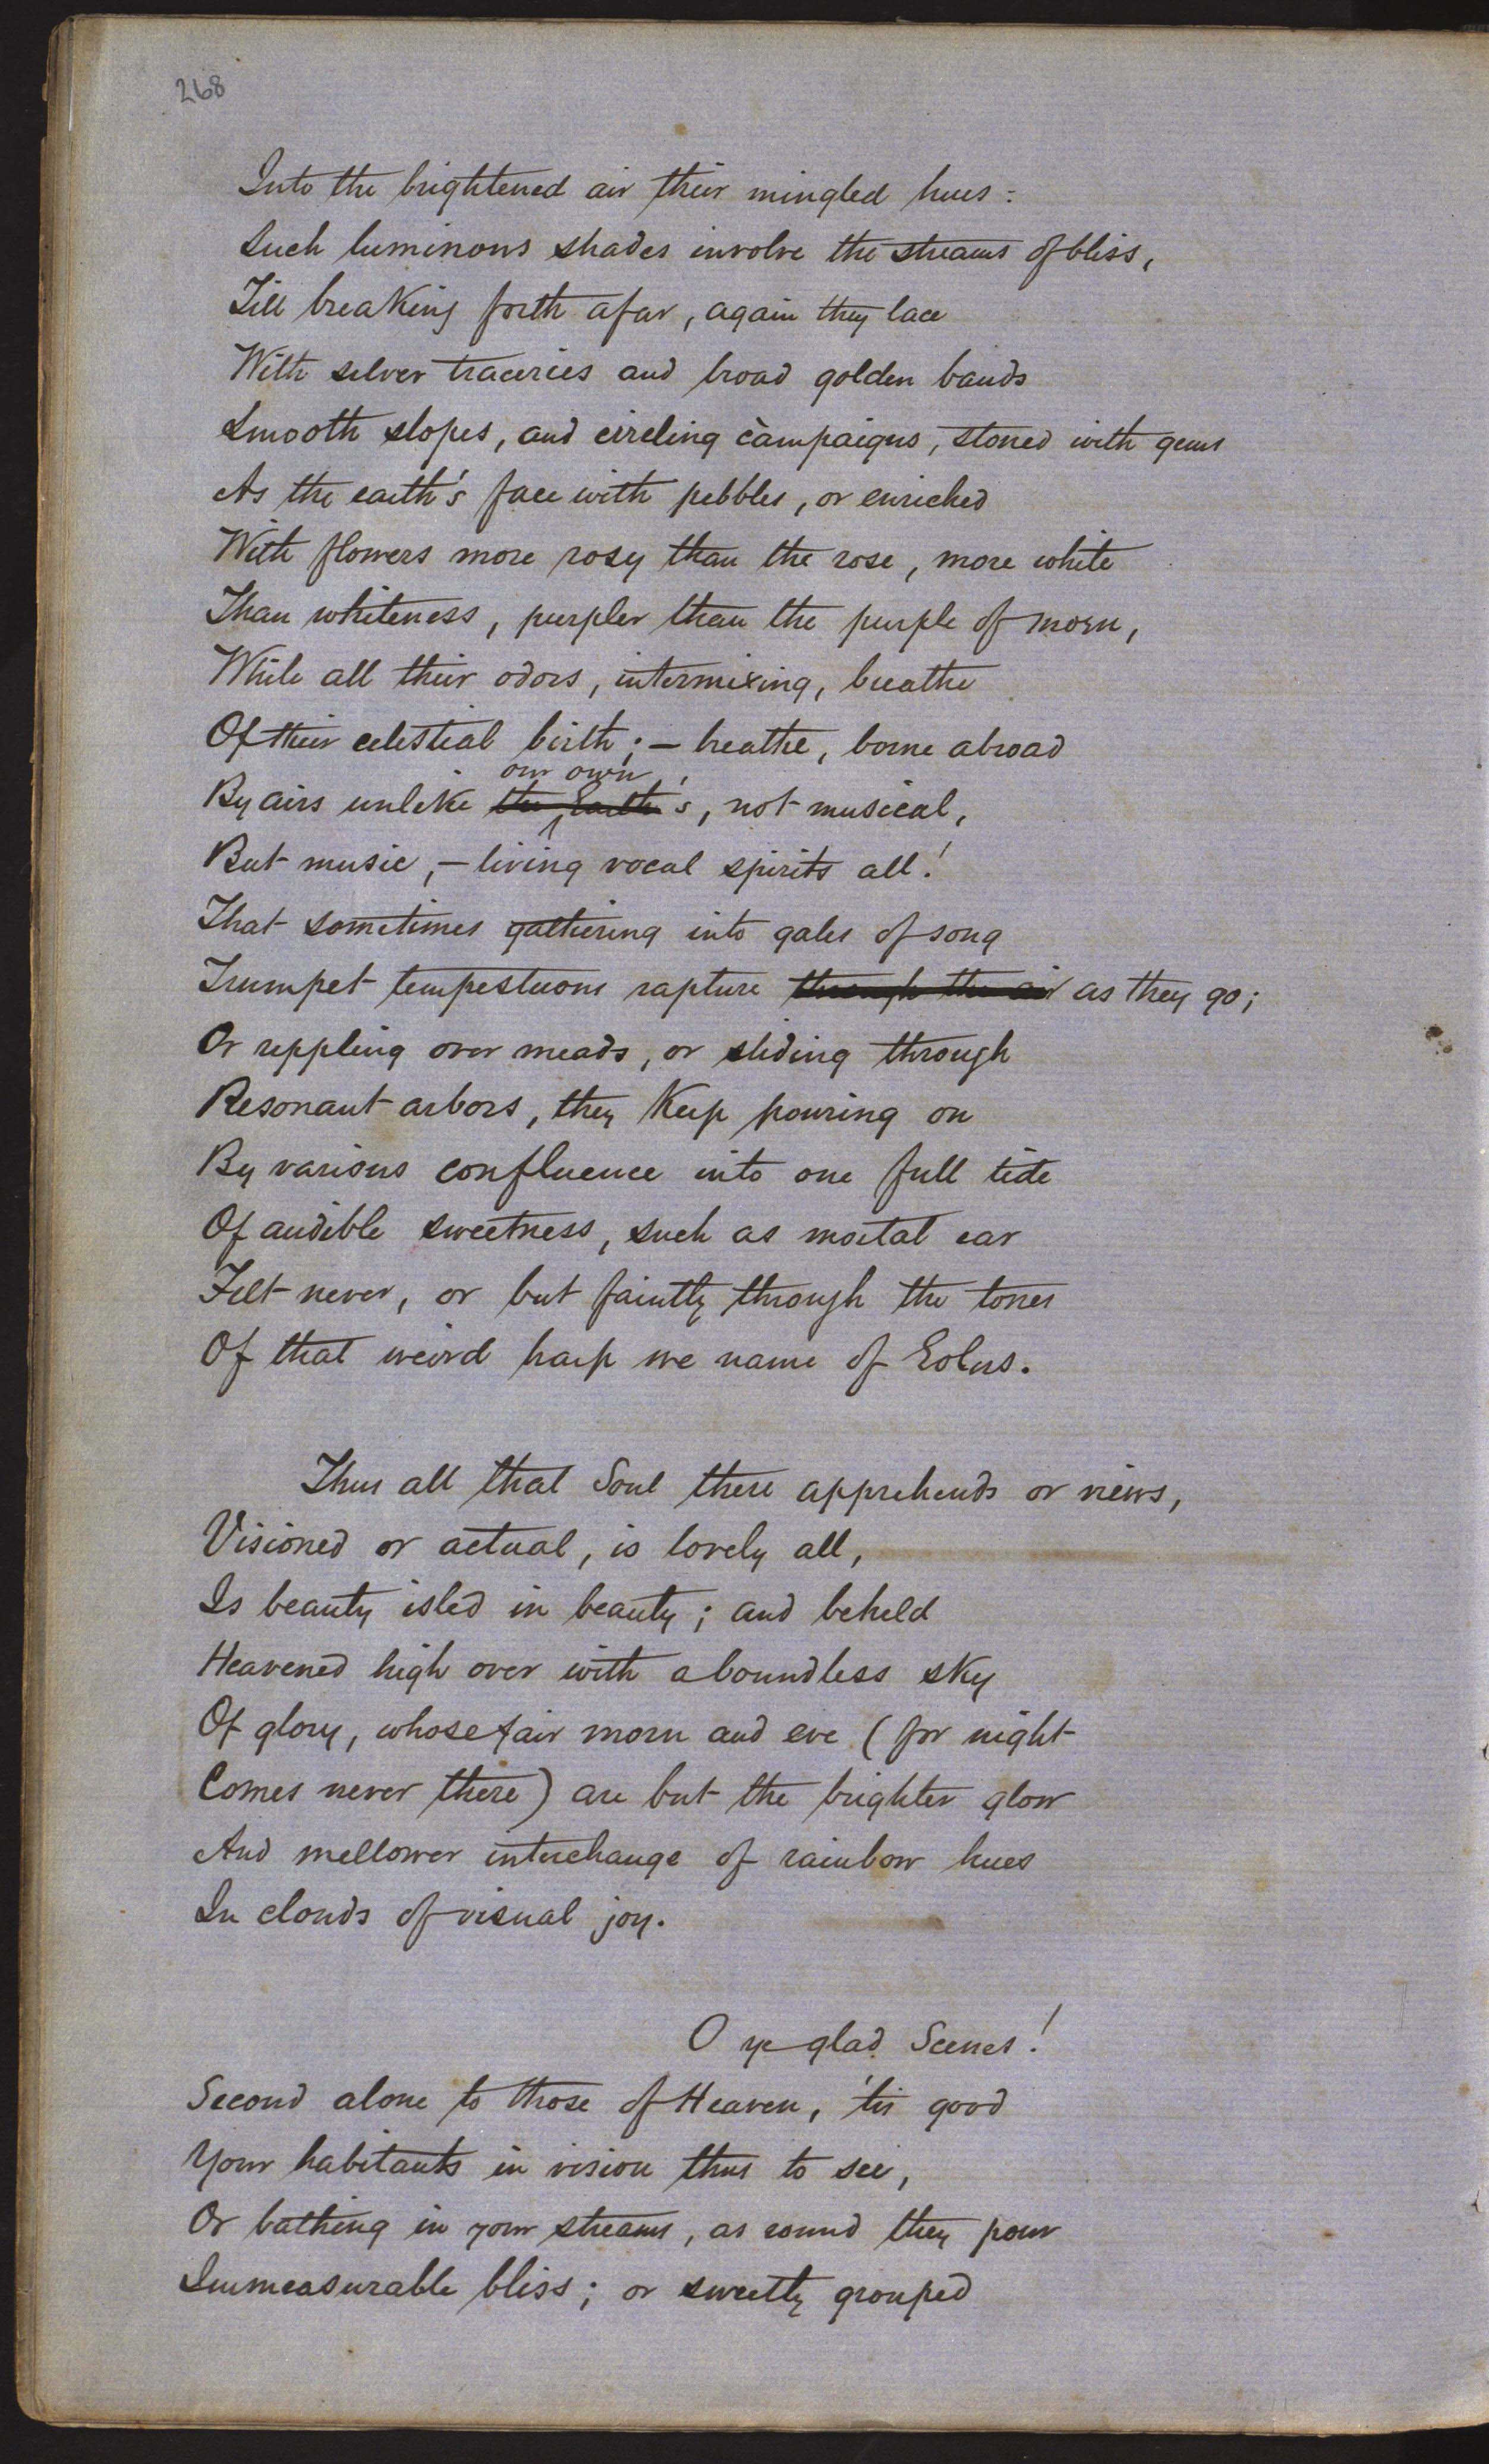 268
Into the brightened air their mingled hues:
Such luminous shades involve the streams of bliss,
Till breaking forth afar, again they lace
With silver traceries and broad golden bands
Smooth slopes, and circling campaigns, stoned with gems
As the earth's face with pebbles, or enriched
With flowers more rosy than the rose, more white
Than whiteness, purpler than the purple of morn,
While all their odors, intermixing, breathe
Of their celestial birth; — breathe, borne abroad
our own
By airs unlike the Earth's, not musical,
But music, — living vocal spirits all!
That sometimes gathering into gales of song
Trumpet tempestuous rapture through the air as they go;
Or rippling over meads, or sliding through
Resonant arbors, they keep pouring on
By various confluence into one full tide
Of audible sweetness, such as mortal ear
Felt never, or but faintly through the tones
Of that weird harp we name of Eolus.
Thus all that Soul there apprehends or views,
Visioned or actual, is lovely all,
Is beauty isled in beauty; and beheld
Heavened high over with a boundless sky
Of glory, whose fair morn and eve (for night
Comes never there) are but the brighter glow
And mellower interchange of rainbow hues
In clouds of visual joy.
O ye glad Scenes!
Second alone to those of Heaven, 'tis good
Your habitants in vision thus to see,
Or bathing in your streams, as round they pour
Immeasurable bliss; or sweetly grouped